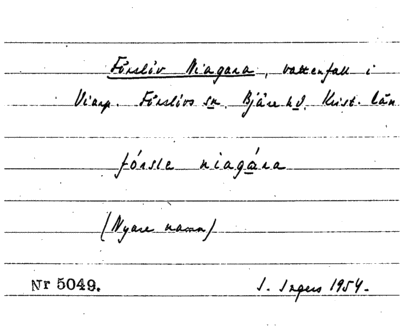 Förslöv Niagara, vattenfall i
Viarp. Förslövs sn Bjäre hd. Krist. län
fórsle niagára
(Nyare namn)
Nr 5049. I. Ingers 1954.